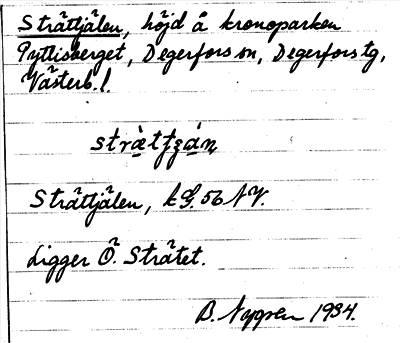 Strättjälen, höjd å kronoparken
Pyttisberget, Degerfors sn, Degerfors tg,
Västerb. l.
Strättjälen, kG. 56 NV.
Ligger Ö. Strätet.
B. Nygren 1934.